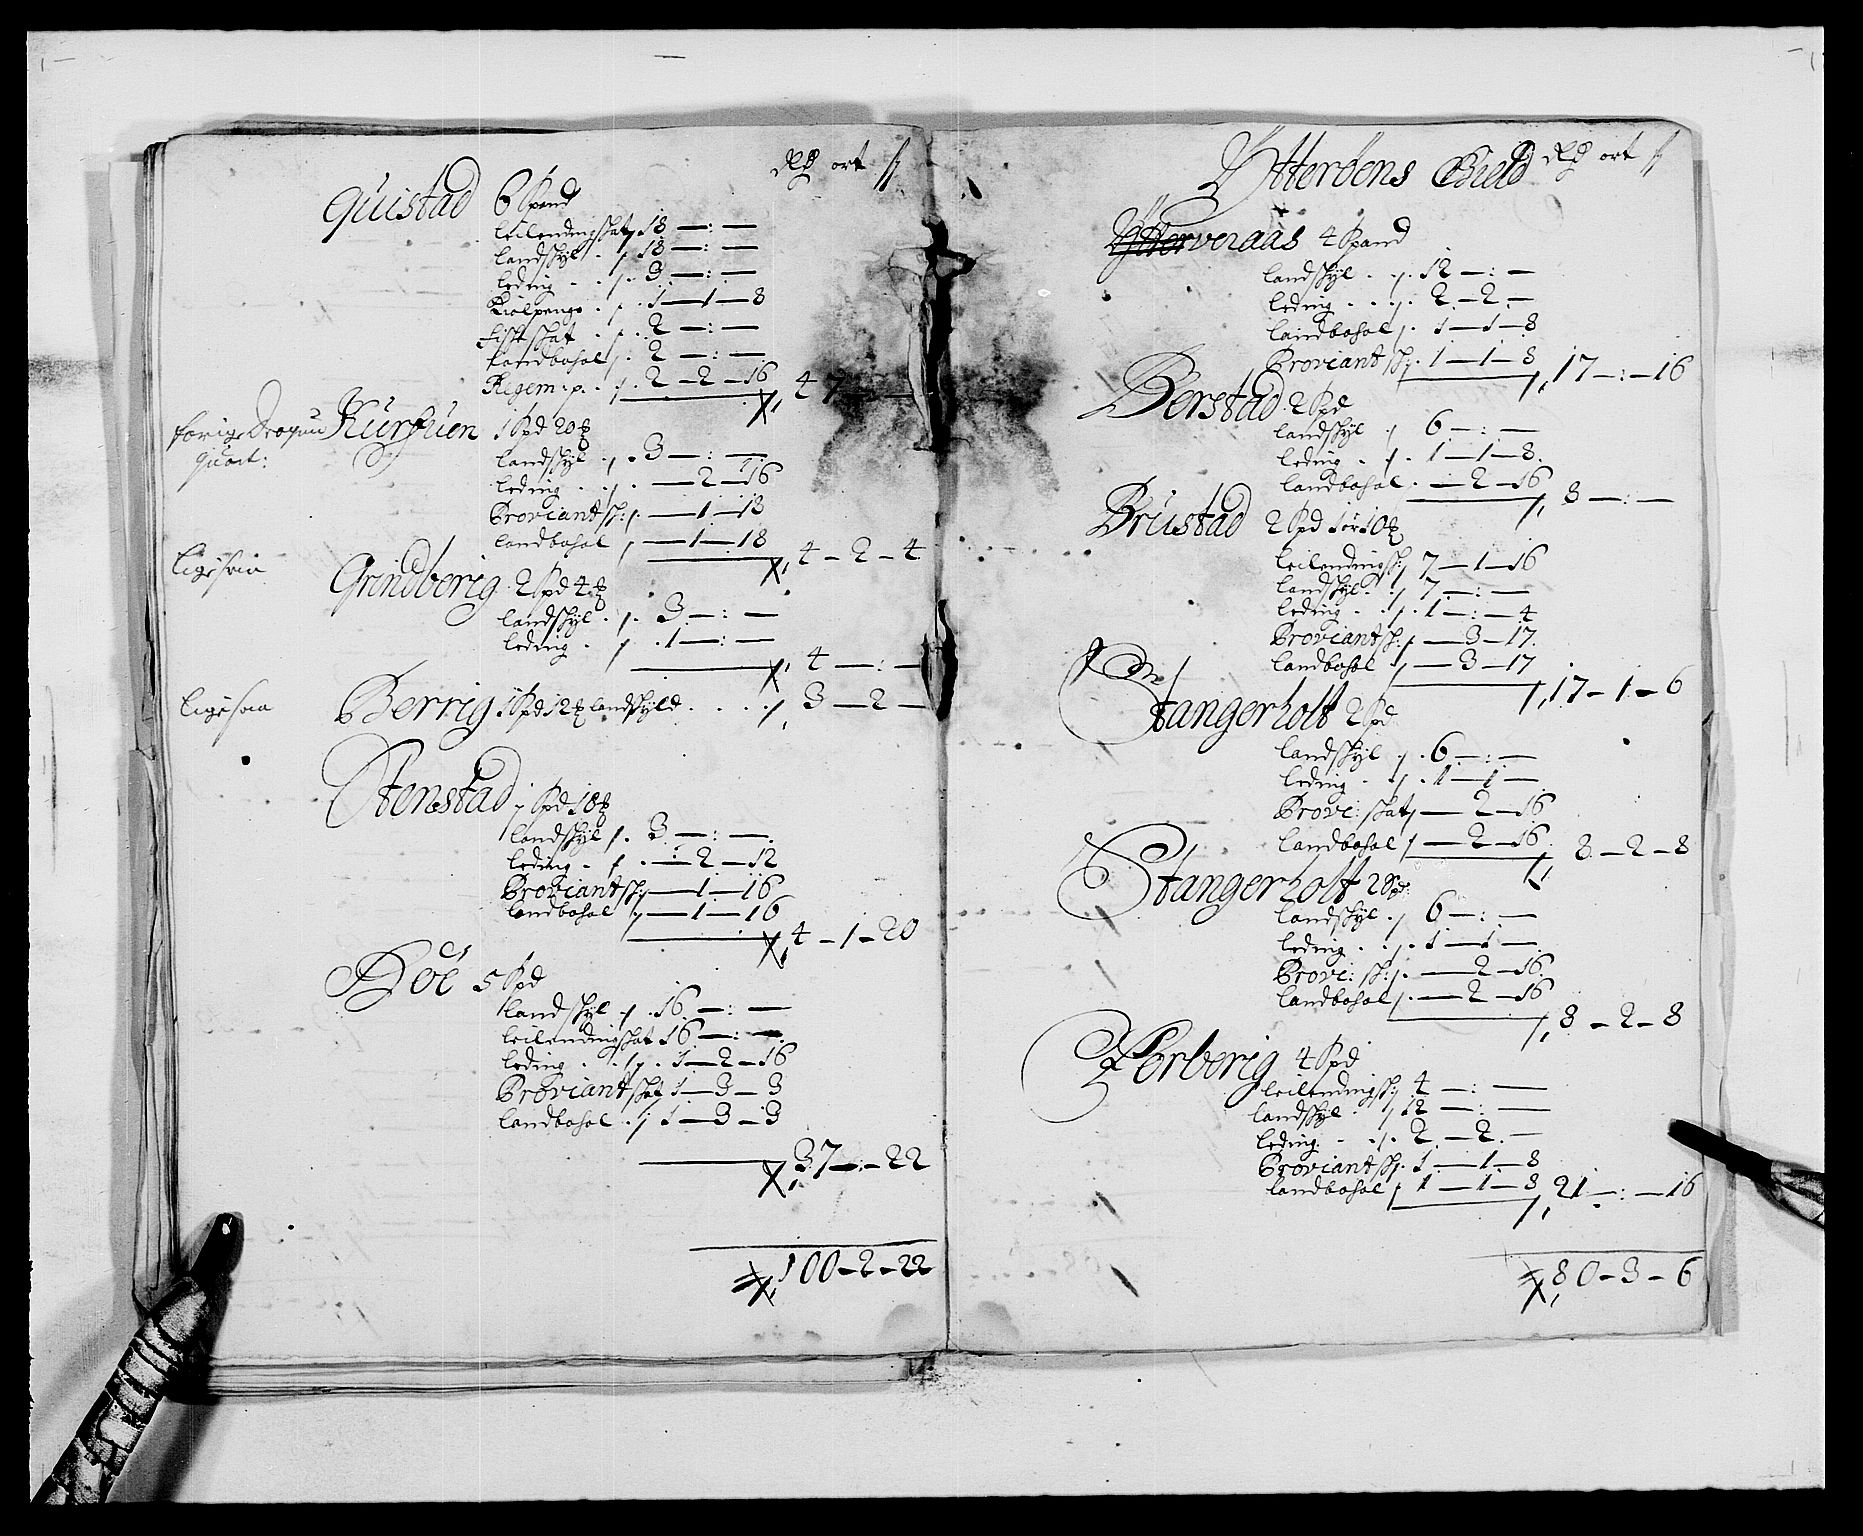 Rdr ort s
Quistad 6 Spand
leilendingschat 18 — : —
landschyl 18 — : —
leding 3 — : —
Holpenge 1 — 1 — 8
fischschat 2 — : —
landbohol 2 — : —
Regem: p. 2 — 2 — 16 47
forige Dragun quart: Hursuen 1 Spd 20
landschyl 3 — : —
leding — 2 — 16
Proviant sch: — 1 — 18
landbohol — 1 — 18
4 — 2 — 4
ligesaa Grindberig 2 Spd 4
landschyl 3 — : —
leding 1 — : —
4 — : —
ligesaa Berrig 1 Spd 12 landschyld 3 — 2 —
Stenstad 1 Spd 18
landschyl 3 — : —
leding — 2 — 12
Proviant sch: — 1 — 16
landbohol — 1 — 16
4 — 1 — 20
Böe 5 Spd
landschyl 16 — : —
leilendingschat 16 — : —
leding 1 — 2 — 16
Proviant schat 1 — 3 — 3
landbohol 1 — 3 — 3
37 — : — 22
100 — 2 — 22
Ytterøens Gield Rdr ort s
Ytterveraas 4 Spand
landschyl 12 — : —
leding 2 — 2 —
landbohol 1 — 1 — 8
Proviant sch 1 — 1 — 8 17 — : — 16
Berstad 2 Spd
landschyl 6 — : —
leding 1 — 1 — 8
landbohol — 2 — 16
8 — : —
Brustad 2 Spd 1 ör 10
leilendingsch: 7 — 1 — 16
landschyl 7 — : —
leding 1 — : — 4
Proviant sch: — 3 — 17
landbohol — 3 — 17
17 — 1 — 6
Stangerholt 2 Spd
landschyl 6 — : —
leding 1 — 1 —
Provi: schat — 2 — 16
landbohol — 2 — 16
8 — 2 — 8
Stangerholt 2 Spd:
landschyl 6 — : —
leding 1 — 1 —
Provi: sch: — 2 — 16
landbohol — 2 — 16
8 — 2 — 8
Forberig 4 Spd
leilendingsch: 4 — : —
landschyl 12 — : —
leding 2 — 2 —
Proviant sch 1 — 1 — 8
landbohol 1 — 1 — 8 21 — : — 16
80 — 3 — 6